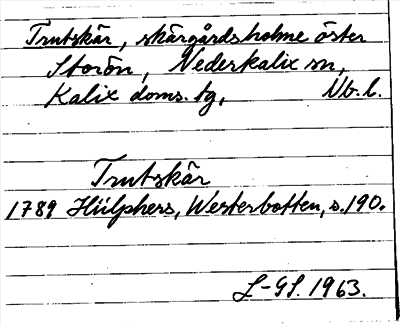 Trutskär, skärgårdsholme öster
Storön, Nederkalix sn,
Kalix doms. tg, Nb. l.
Trutskär
1789 Hülphers, Westerbotten, s. 190.
L-GS. 1963.